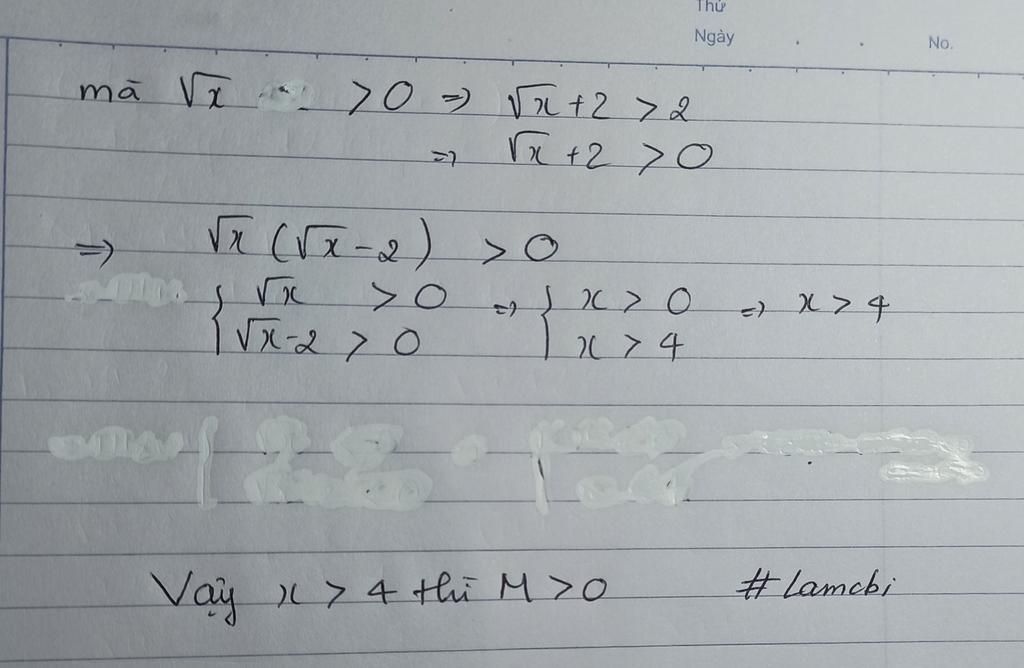 Thứ
Ngày . . No.
mà √x > 0 => √x + 2 > 2
=> √x + 2 > 0
=> √x (√x - 2) > 0
{ √x > 0 => { x > 0 => x > 4
√x - 2 > 0 x > 4
Vậy x > 4 thì M > 0 #lamcbi